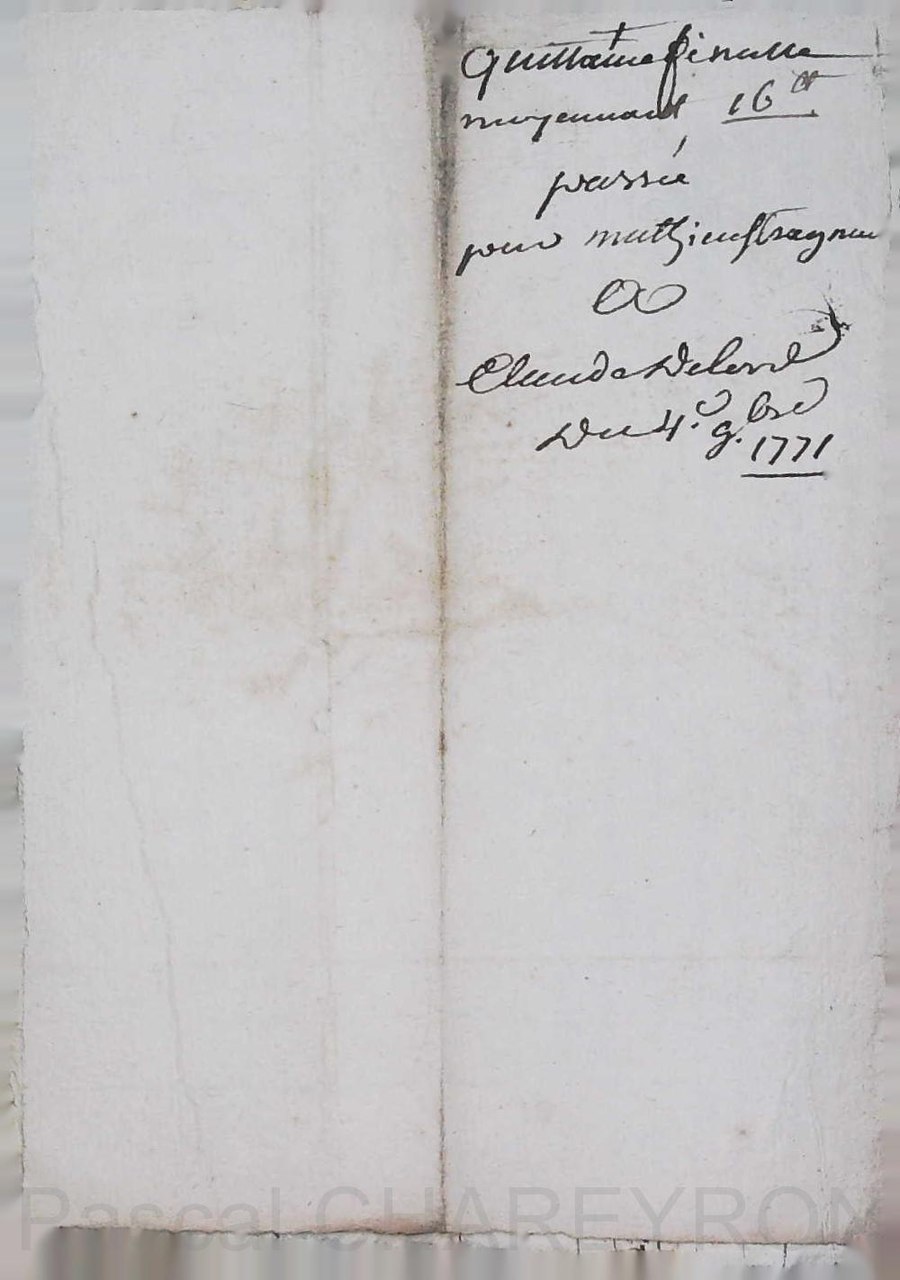 quittance finalle
moyennant 16 ₶
passée
pour mathieu
a
Claude Delord
Du 4.e 9.bre
1771
Pascal CHAREYRON